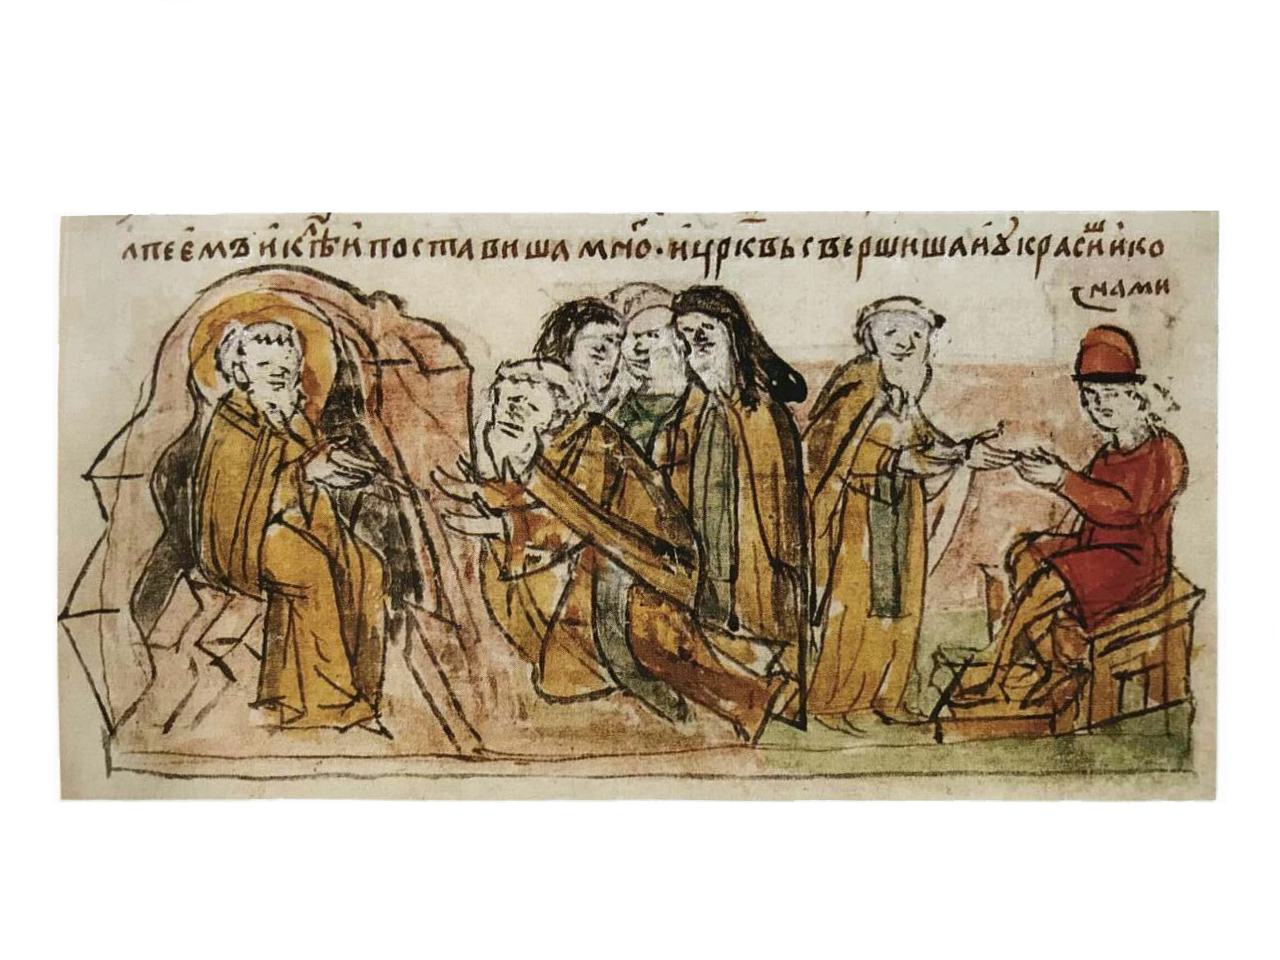 лпеемъ и кѣлїи поставиша мно҃. и црк҃въ свершиша и ꙋкрасиш ико
нами